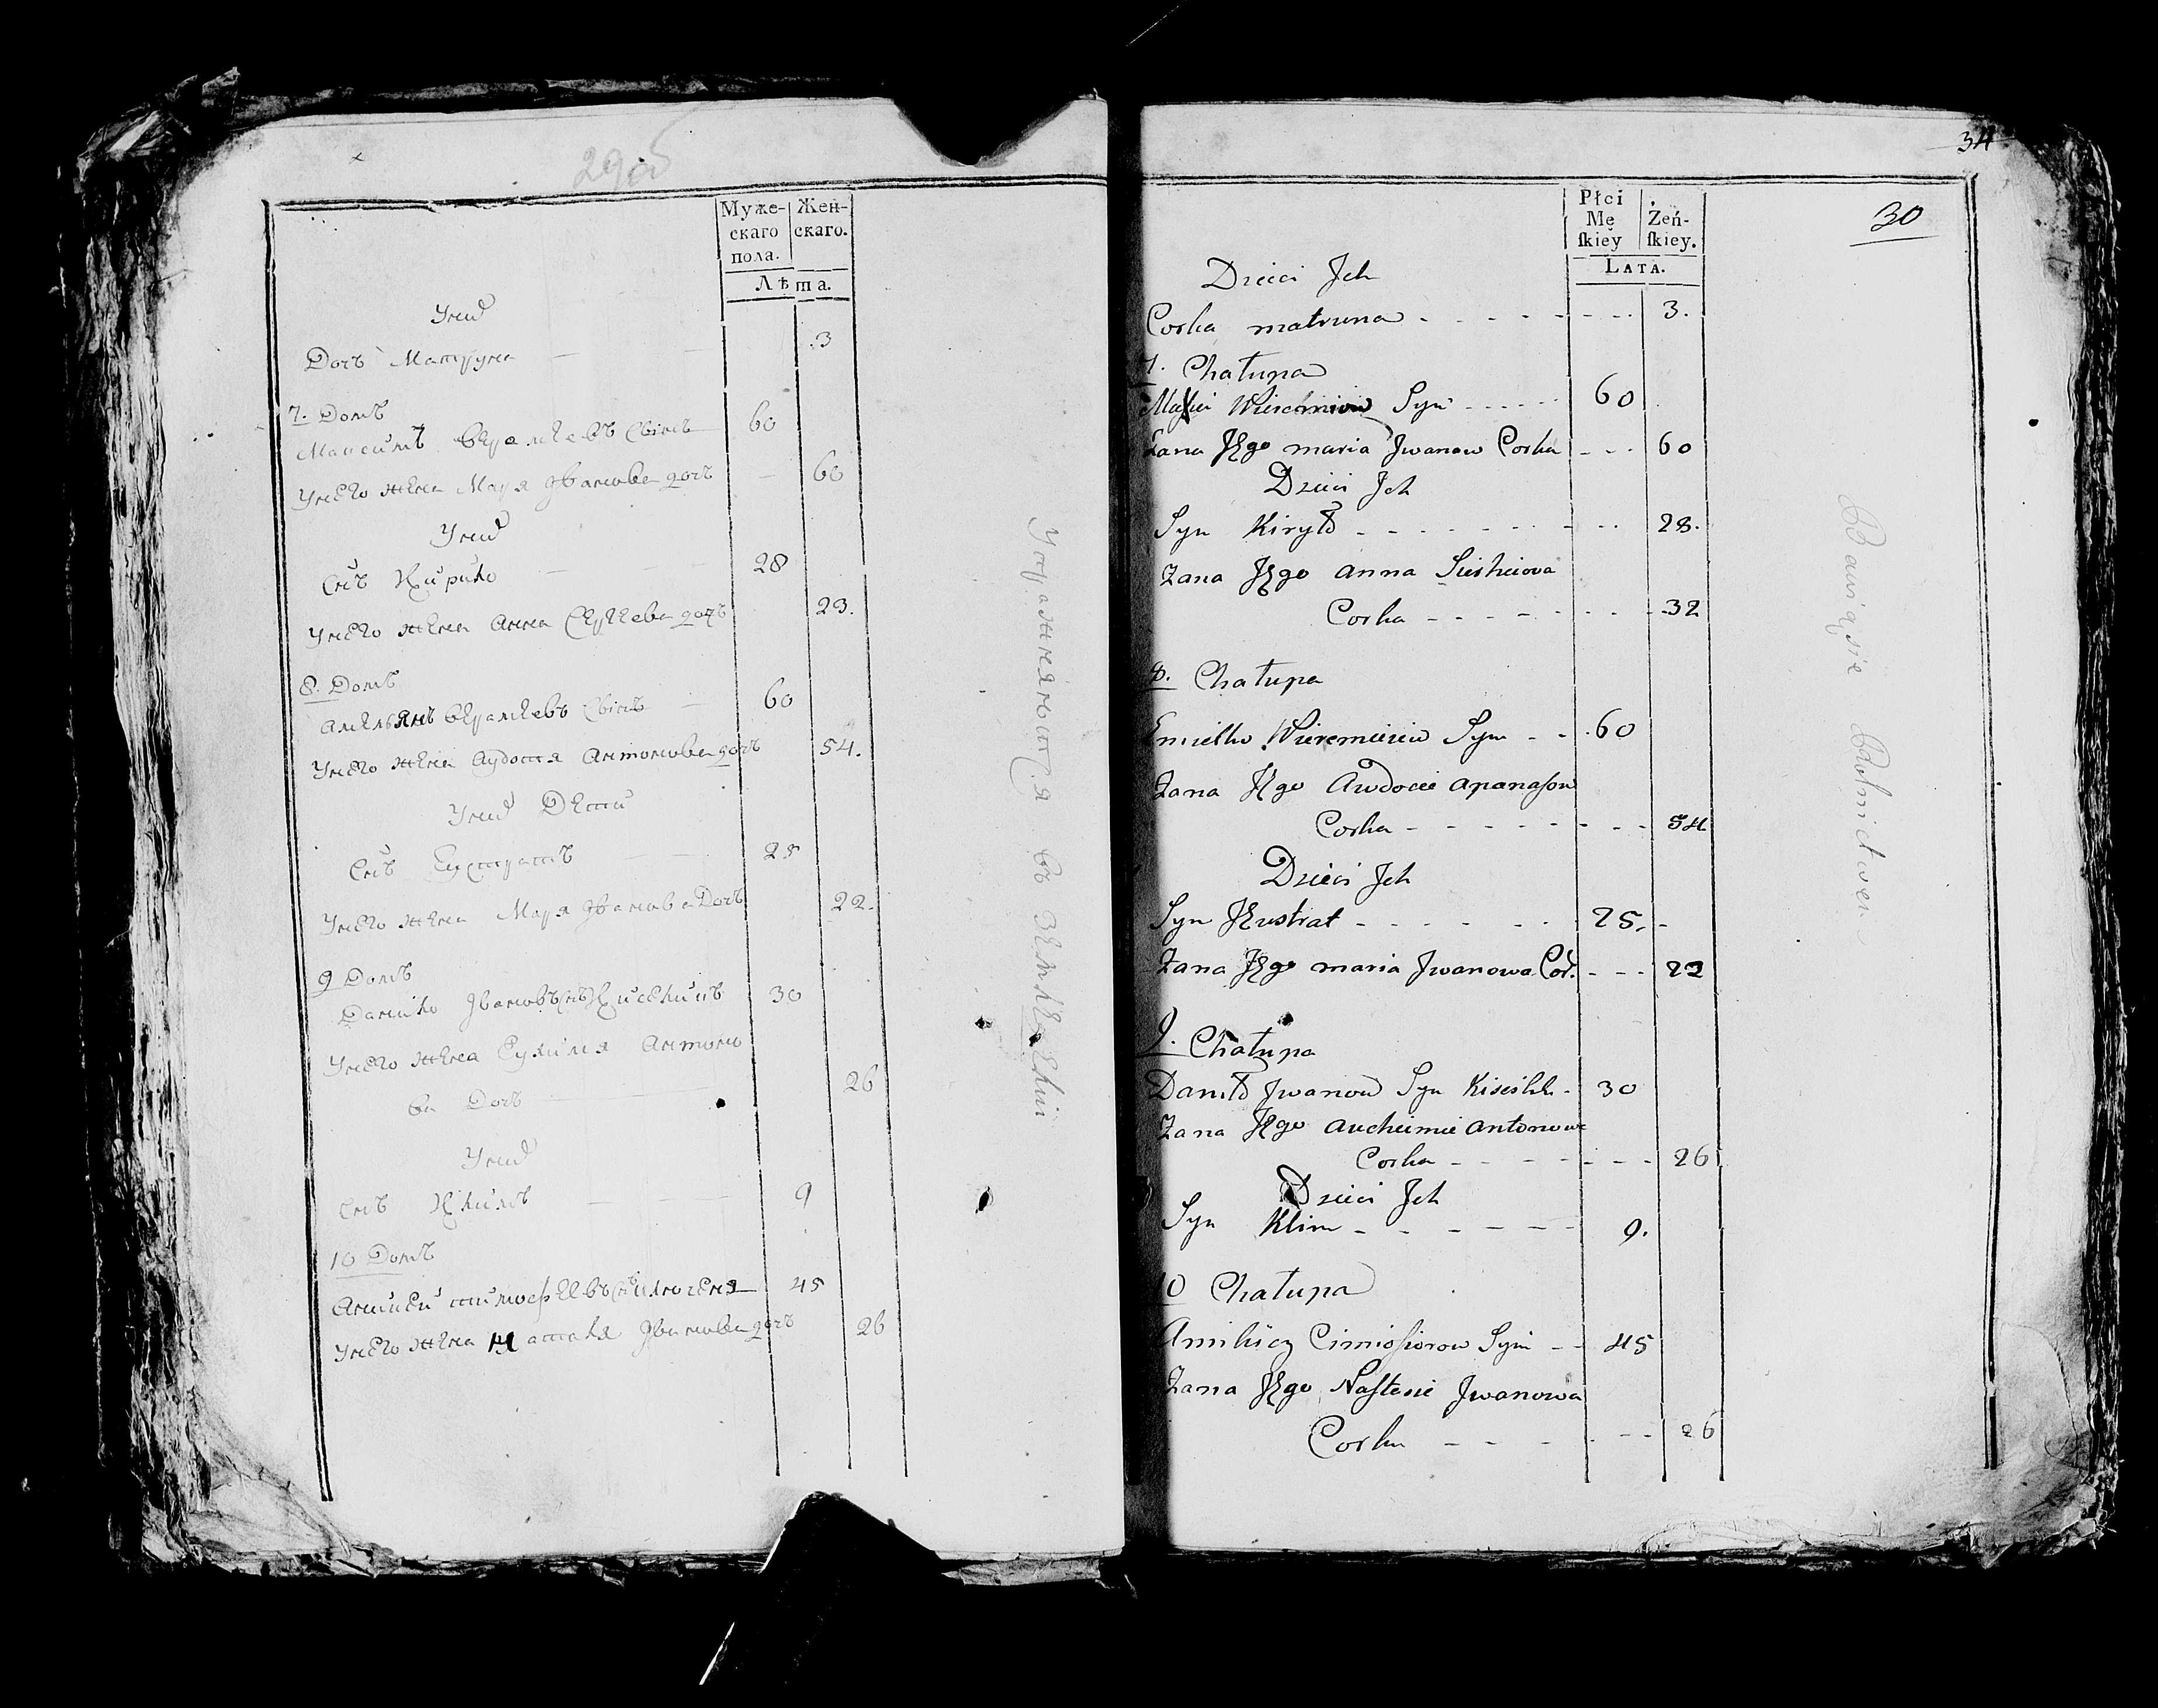 29об
Муже-
скаго
пола.
Жен-
скаго.
Лѣта.
Унихъ
Дочь Матруна 3
7. Домъ
Максимъ Ераmѣевъ Сынъ 60
Унего жена Маря Иванова дочь 60
Унихъ
Снъ Кирило 28
Унего жена Анна Сергѣева дочь 23.
8. Домъ
Амельянъ Ерамѣевъ Сынъ 60
Унего жена Аудотя Антонова дочь 54.
Унихъ Дети
Снъ Еустратъ 25
Унего жена Маря Иванова Дочь 22.
9 Домъ
Данило Ивановъ снъ Киселигъ 30
Унего жена Еухимя Антоно
ва Дочь 26
Унихъ
Снъ Климъ 9
10 Домъ
Аникеи тимофеевъ снъ 45
Унего жена Настася Иванова дочь 26
Упражняютца въ
34
30
Płci
Mę
ſkiey
Żeń-
ſkiey.
LATA.
Dzieci Jch
Corka matruna 3.
7. Chałupa
Wieremiow Syn 60
Żana JEgo maria Jwanow Corka 60
Dzieci Jch
Syn Kiryło 28.
Żana JEgo anna Sierhiiowa
Corka 32
8. Chałupa
Emielko Wieremieiew Syn 60
Żana JEgo Awdocie apanaſow
Corka 54
Dzieci Jch
Syn JEustrat 25.
Żana JEgo maria Jwanowa Cor. 22
9. Chałupa
Daniło Jwanow Syn 30
Żana JEgo auchimie antonowa
Corka 26
Dzieci Jch
Syn Klim 9.
10 Chałupa
Anikiey Cimofiorow Syn 45
Żana JEgo Naſtesie Jwanowa
Corka 26
Bawią się Rolnictwem